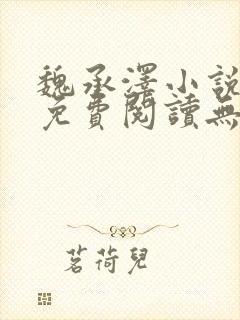 魏承澤小說
免費閱讀無
茗荷兒